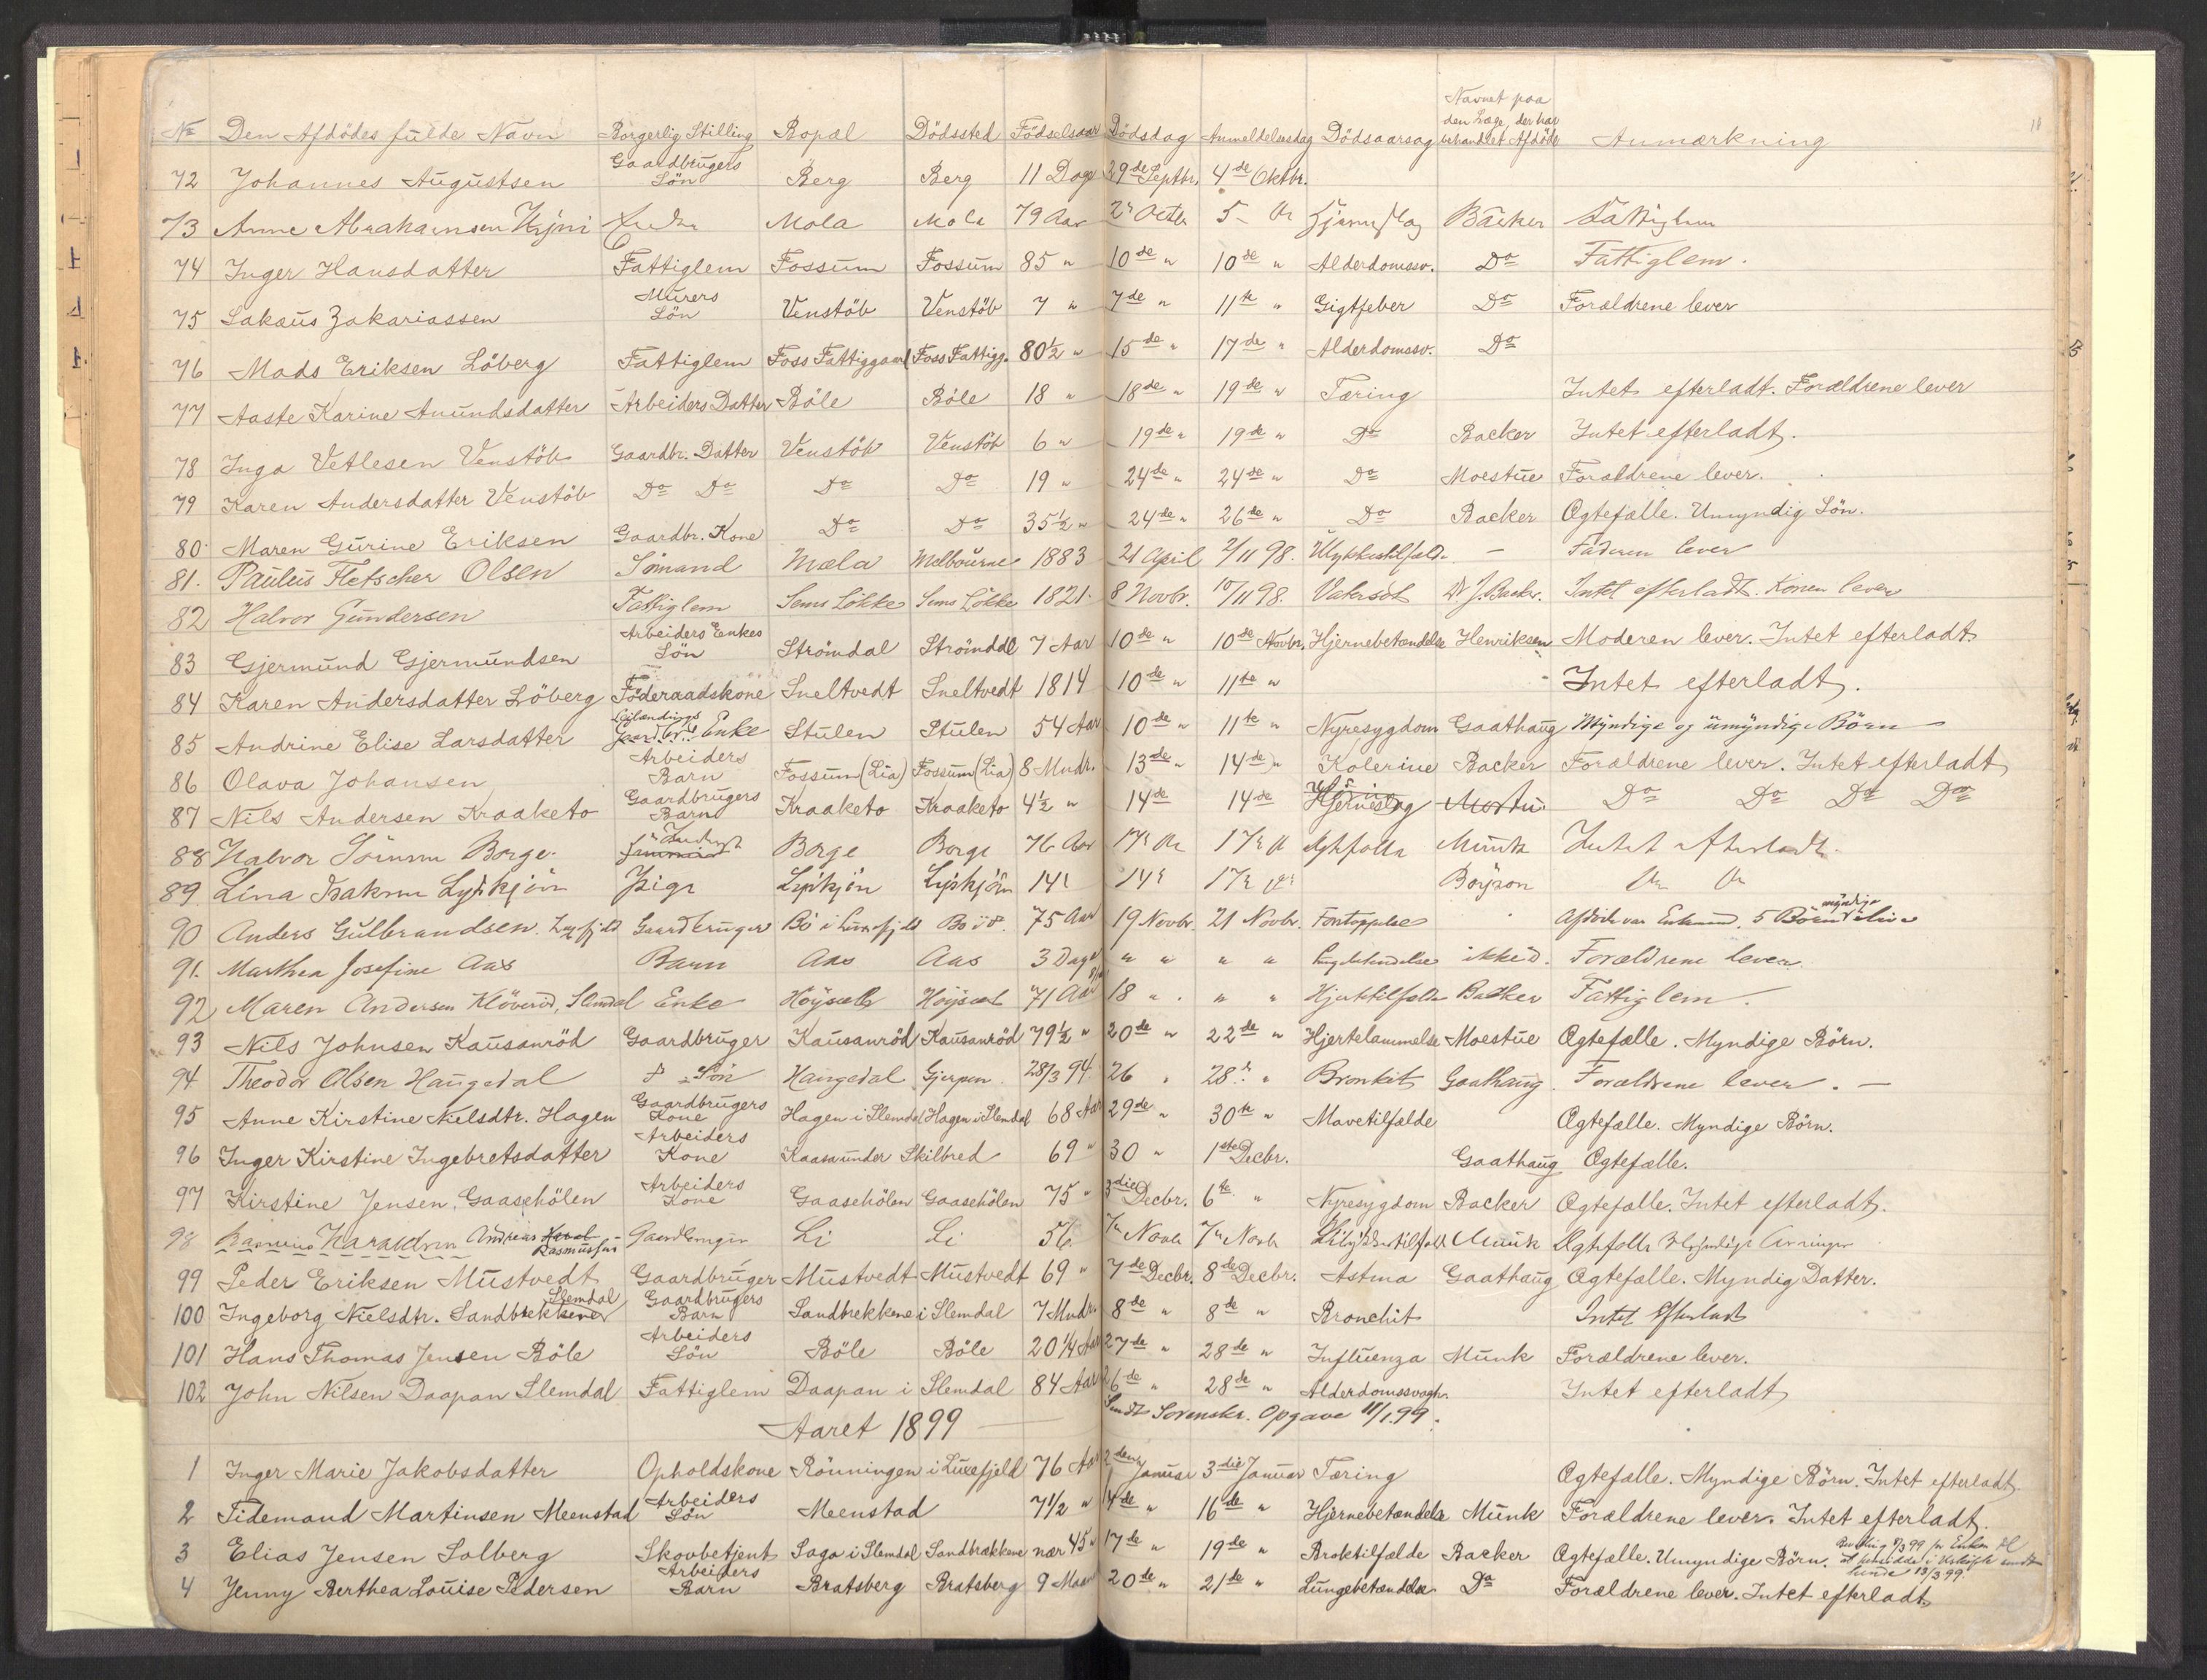 No Den Afdödes fulde Navn Borgerlig Stilling Bopæl Dödssted Födselsaar Dödsdag Anmeldelsesdag Dödsaarsag Navnet paa den Læge, der har behandlet Afdöde Anmærkning
72 Johannes Augustsen Gaardbrugers Sön Berg Berg 11 Dage 29de Septbr. 4de Oktbr.
73 Anne Abrahamsen Mola Mola 79 Aar Octb 5 Backer Fattiglem
74 Inger Hansdatter Fattiglem Fossum Fossum 85 " 10de " 10de " Alderdomssv. Do Fattiglem.
75 Sakäus Zakariassen Murers Sön Venstöb Venstöb 7 " 7de " 11te " Gigtfeber Do Forældrene lever
76 Mads Eriksen Löberg Fattiglem Foss Fattiggaard Foss Fattigg. 80½ " 15de " 17de " Alderdomssv. Do
77 Aaste Karine Amundsdatter Arbeiders Datter Böle Böle 18 " 18de " 19de " Tæring Intet efterladt. Forældrene lever
78 Inga Vetlesen Venstöb Gaardbr. Datter Venstöb Venstöb 6 " 19de " 19de " Do Backer Intet efterladt.
79 Karen Andersdatter Venstöb Do Do Do Do 19 " 24de " 24de " Do Moestue Forældrene lever.
80. Maren Gurine Eriksen Gaardbr. Kone Do Do 35½ " 24de " 26de " Do Backer Ægtefælle. Umyndig Sön.
81. Paulus Fletscher Olsen Sömand Mæla Melbourne 1883 21 April 2/11 98. Ulykkestilfælde — Faderen lever
82 Halvor Gundersen Fattiglem Sems Lökke Sems Lökke 1821. 8 Novbr. 10/11 98. Vatersot Dr J. Backer. Intet efterladt. Konen lever
83 Gjermund Gjermundsen Arbeiders Enkes Sön Strömdal Strömdal 7 Aar 10de " 10de Novbr. Hjernebetændelse Henriksen Moderen lever. Intet efterladt
84 Karen Andersdatter Löberg Föderaadskone Sneltvedt Sneltvedt 1814 10de " 11te " Intet efterladt.
85 Andrine Elise Larsdatter Enke Stulen Stulen 54 Aar 10de " 11te " Nyresygdom Gaathaug Myndige og umyndige Börn
86 Olava Johansen Arbeiders Barn Fossum (Lia) Fossum (Lia) 8 Mndr. 13de " 14de " Kolerine Backer Forældrene lever. Intet efterladt
87 Nils Andersen Kraaketo Gaardbrugers Barn Kraaketo Kraaketo 4½ " 14de 14de Hjerneslag Do Do Do Do
88 Halvor Borge. Borge Borge 76 Aar 17 17 Munk Intet efterladt.
89 Lina Pige 14 14 17
90 Anders Gulbrandsen. Luxefjeld Gaardbruger Bö i Luxefjeld Bö i do. 75 Aar 19 Novbr. 21 Novbr. Afdöde var Enkemand. 5 myndige Börn i live
91. Marthea Josefine Aas Barn Aas Aas 3 Dage " " " " Forældrene lever.
92 Maren Andersen Slemdal Enke Höysæt Höysæt 71 Aar 18 " " " Hjertetilfælde Backer Fattiglem.
93 Nils Johnsen Kausanröd Gaardbruger Kausanröd Kausanröd 79½ " 20de " 22de " Hjertelammelse Moestue Ægtefælle. Myndige Börn.
94 Theodor Olsen Haugedal Sön Haugedal Gjerpen. 28/3 94. 26 " 28 " Bronkit Gaathaug. Forældrene lever. —
95 Anne Kirstine Nielsdtr. Hagen Gaardbrugers Kone Hagen i Slemdal Hagen i Slemdal 68 Aar 29de " 30te " Mavetilfælde Ægtefælle. Myndige Börn.
96 Inger Kirstine Ingebretsdatter Arbeiders Kone Kaasa under Skilbred 69 " 30 " 1ste Decbr. Gaathaug Ægtefælle.
97 Kirstine Jensen. Gaasehölen Arbeiders Kone Gaasehölen Gaasehölen 75 " 3die Decbr. 6te " Nyresygdom Backer Ægtefælle. Intet efterladt.
98 Andreas Rasmussen Gaardbruger Li Li 56 7 Novb 7 Novb Munk
99 Peder Eriksen Mustvedt Gaardbruger Mustvedt Mustvedt 69 " 7de Decbr. 8de Decbr. Astma Gaathaug Ægtefælle. Myndig Datter.
100 Ingeborg Nielsdtr. Sandbekkene Slemdal Gaardbrugers Barn Sandbekkene i Slemdal 7 Mndr. 8de " 8de " Bronchit Intet Efterladt
101 Hans Thomas Jensen Böle Arbeiders Sön Böle Böle 20 1/4 Aar 27de " 28de " Influenza Munk Forældrene lever.
102 John Nilsen Daapan Slemdal Fattiglem Daapan i Slemdal 84 Aar 26de " 28de " Alderdomssvagh. Intet efterladt
Sendt Sorenskr. Opgave 11/1.99.
Aaret 1899
1 Inger Marie Jakobsdatter Opholdskone Rönningen i Luxefjeld 76 Aar 2den Januar 3die Januar Tæring Ægtefælle. Myndige Börn. Intet efterladt.
2 Tidemand Martinsen Meenstad Arbeiders Sön Meenstad 7 1/2 " 14de " 16de " Hjernebetændelse Munk Forældrene lever. Intet efterladt.
3 Elias Jensen Solberg Skovbetjent Saga i Slemdal Sandbrækkene nær 45 " 17de " 19de " Broktilfælde Backer Ægtefælle. Umyndige Börn.
4 Jenny Berthea Louise Pedersen Arbeiders Barn Bratsberg Bratsberg 9 20de " 21de " Lungebetændelse Do Forældrene lever. Intet efterladt.